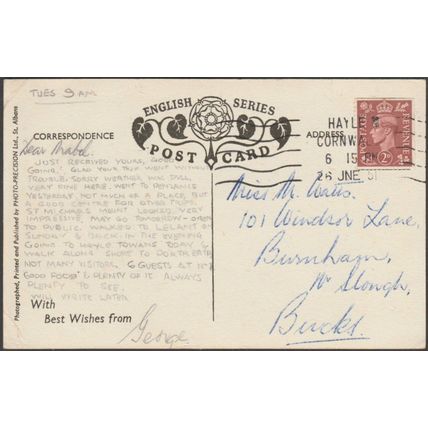 TUES 9 AM
ENGLISH SERIES
POST CARD
CORRESPONDENCE
ADDRESS
HAYLE
CORNWALL
6 15 PM
26 JNE 51
POSTAGE REVENUE
2D
Photographed, Printed and Published by PHOTO-PRECISION Ltd., St. Albans
Dear Mabel.
JUST RECEIVED YOURS, GOOD
GOING! GLAD YOUR TRIP WENT WITHOUT
TROUBLE. SORRY WEATHER WK DULL
VERY FINE HERE. WENT TO PENZANCE
YESTERDAY NOT MUCH OF A PLACE, BUT
A GOOD CENTRE FOR OTHER TRIPS.
ST MICHAELS MOUNT LOOKED VERY
IMPRESSIVE, MAY GO TOMORROW - OPEN
TO PUBLIC. WALKED TO LELANT ON
SUNDAY & BACK IN THE EVENING
GOING TO HAYLE TOWANS TODAY &
WALK ALONG SHORE TO PORTREATH
NOT MANY VISITORS, 6 GUESTS AT
GOOD FOOD & PLENTY OF IT ALWAYS
PLENTY TO SEE.
WILL WRITE LATER
With
Best Wishes from
George.
Miss M. Watts,
101 Windsor Lane,
Burnham,
Nr Slough,
Bucks.